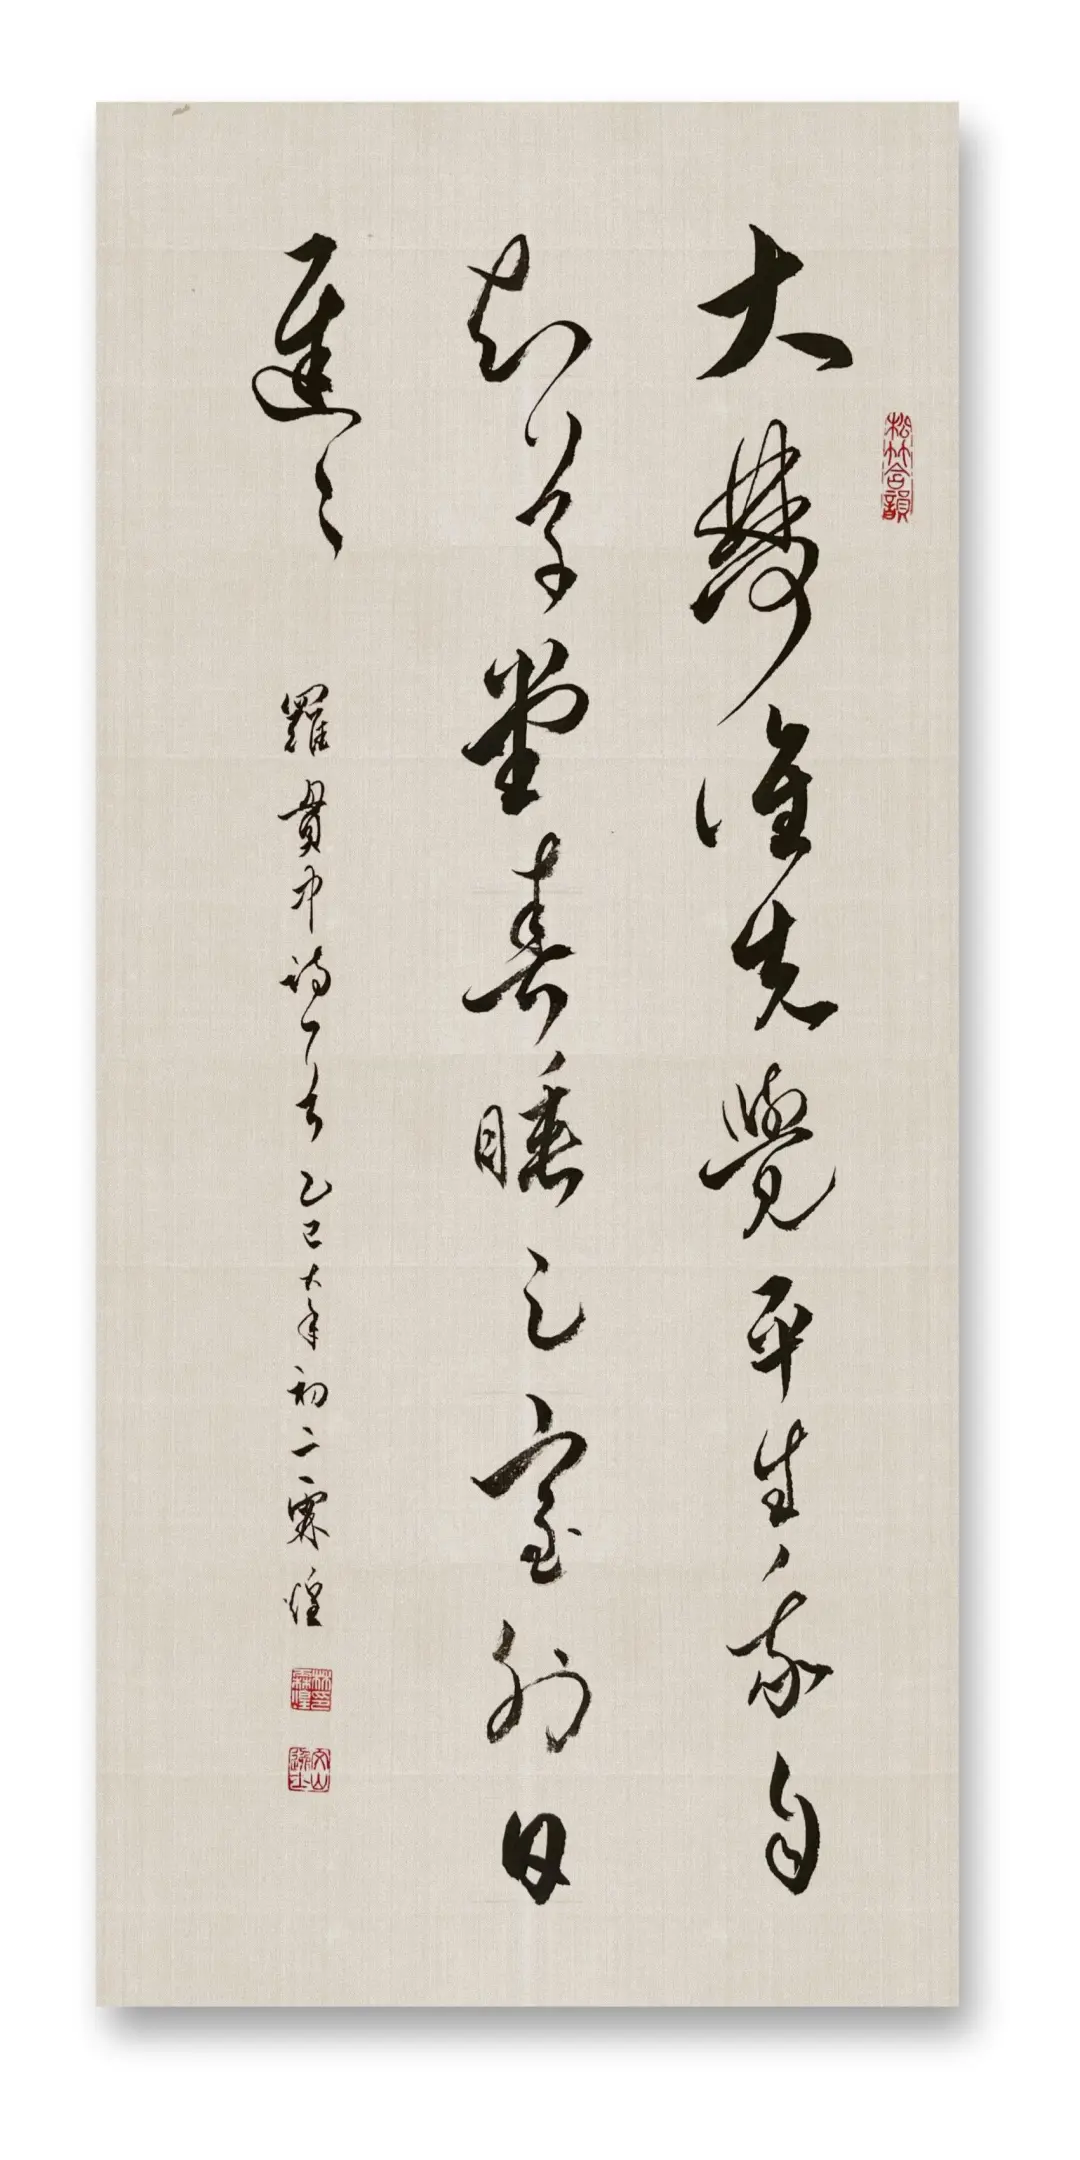 大夢誰先覺平生我自
知草堂春睡足窗外日
遲々
羅貫中詩一首 乙巳大年初二霖煌
松竹含韻
文山逸士